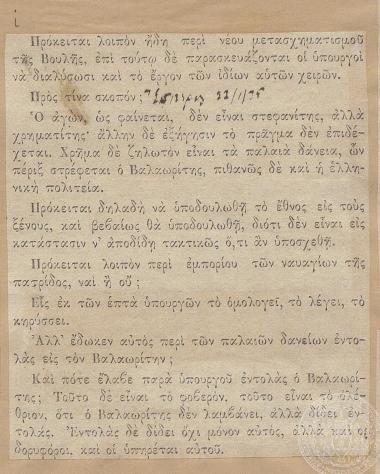 Πρόκειται λοιπὸν ἤδη περὶ νέου μετασχηματισμοῦ
τῆς Βουλῆς, ἐπὶ τούτῳ δὲ παρασκευάζονται οἱ ὑπουργοὶ
νὰ διαλύσωσι καὶ τὸ ἔργον τῶν ἰδίων αὐτῶν χειρῶν.
Πρὸς τίνα σκοπόν;
Ὁ ἀγών, ὡς φαίνεται, δὲν εἶναι στεφανίτης, ἀλλὰ
χρηματίτης· ἄλλην δὲ ἐξήγησιν τὸ πρᾶγμα δὲν ἐπιδέ-
χεται. Χρῆμα δὲ ζηλωτὸν εἶναι τὰ παλαιὰ δάνεια, ὧν
πέριξ στρέφεται ὁ Βαλαωρίτης, πιθανῶς δὲ καὶ ἡ ἑλλη-
νικὴ πολιτεία.
Πρόκειται δηλαδὴ νὰ ὑποδουλωθῇ τὸ ἔθνος εἰς τοὺς
ξένους, καὶ βεβαίως θὰ ὑποδουλωθῇ, διότι δὲν εἶναι εἰς
κατάστασιν ν' ἀποδίδῃ τακτικῶς ὅ,τι ἂν ὑποσχεθῇ.
Πρόκειται λοιπὸν περὶ ἐμπορίου τῶν ναυαγίων τῆς
πατρίδος, ναὶ ἢ οὔ;
Εἷς ἐκ τῶν ἑπτὰ ὑπουργῶν τὸ ὁμολογεῖ, τὸ λέγει, τὸ
κηρύσσει.
Ἀλλ' ἔδωκεν αὐτὸς περὶ τῶν παλαιῶν δανείων ἐντο-
λὰς εἰς τὸν Βαλαωρίτην;
Καὶ πότε ἔλαβε παρὰ ὑπουργοῦ ἐντολὰς ὁ Βαλαωρί-
της; Τοῦτο δὲ εἶναι τὸ φοβερόν. τοῦτο εἶναι τὸ ὀλέ-
θριον, ὅτι ὁ Βαλαωρίτης δὲν λαμβάνει, ἀλλὰ δίδει ἐν-
τολάς. Ἐντολὰς δὲ δίδει ὄχι μόνον αὐτός, ἀλλὰ καὶ οἱ
δορυφόροι, καὶ οἱ ὑπηρέται αὐτοῦ.